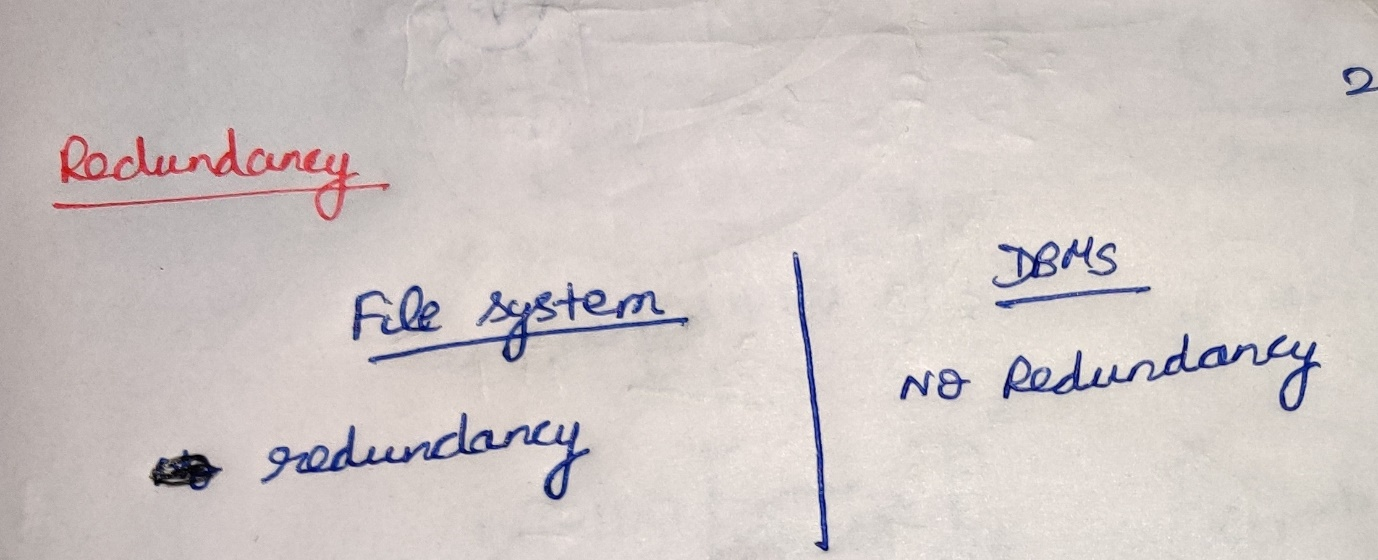 2
Redundancy
File system
redundancy
DBMS
No Redundancy